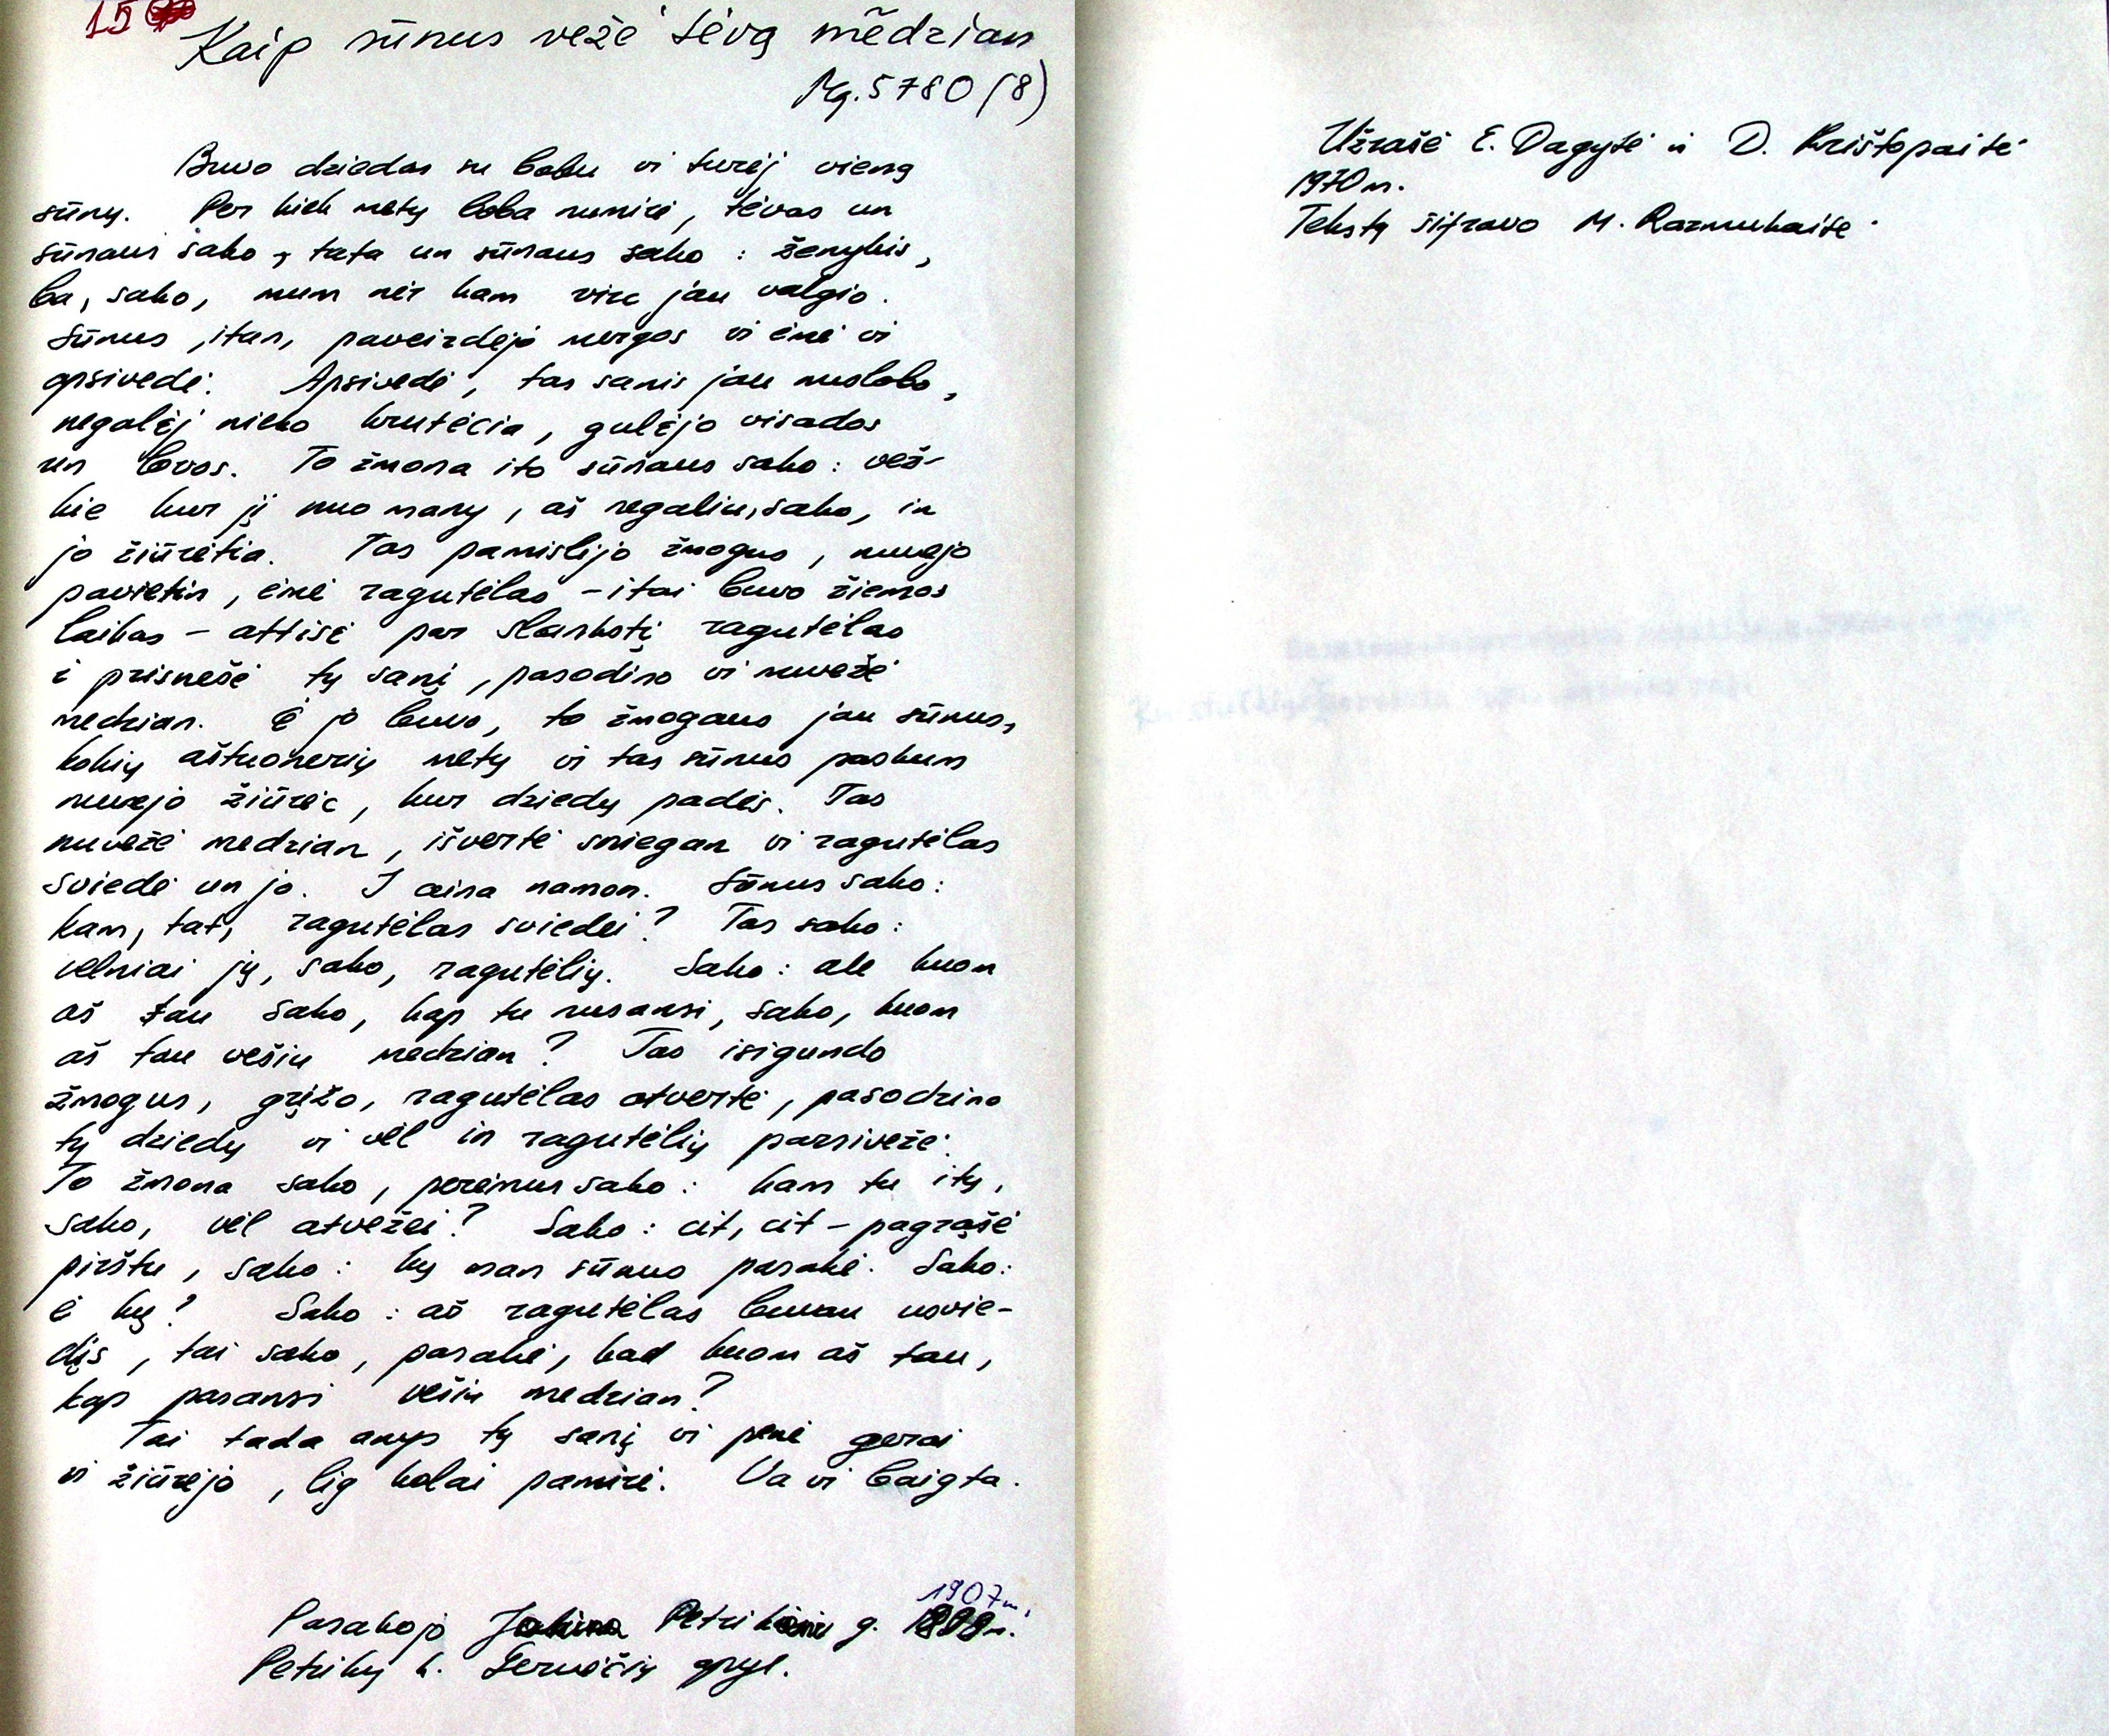 15
Kaip sūnus vežė tėvą mẽdzian
Mg. 5780 (8)
Buvo dziedas su bobu vi turėj vieną
sūnų. Per kiek metų boba numirė, tėvas un
sūnaus sako, tata un sūnaus sako: ženykis,
ba, sako, mum nėr kam virc jau valgio.
Sūnus, itan, paveizdėjo mergos vi ėmė vi
apsivedė. Apsivedė, tas sanis jau nuslobo,
negalėj nieko krutėcia, gulėjo visados
un lovos. To žmona ito sūnaus sako: vež-
kie kur jį nuo manų, aš negaliu, sako, in
jo žiūrėtia. Tas pamislijo žmogus, nuvejo
pavietin, ėmė ragutėlas – itai buvo žiemos
laikas – attisė par slanksti ragutėlas
i prisnešė tų sanį, pasodino vi nuvežė
medzian. Ė jo buvo, to žmogaus jau sūnus,
kokių aštuonerių metų vi tas sūnus paskum
nuvejo žiūrėc, kur dziedų padės. Tas
nuvežė medzian, išvertė sniegan vi ragutėlas
sviedė un jo. I aina namon. Sūnus sako:
kam, tat, ragutėlas sviedei? Tas sako:
velniai jų, sako, ragutėlių. Sako: ale kuom
aš tau sako, kap tu nusansi, sako, kuom
aš tau vešiu medzian? Tas isigundo
žmogus, grįžo, ragutėlas atvertė, pasodzino
tų dziedų vi vėl in ragutėlių parsivežė.
To žmona sako, perėmus sako: kam tu itų,
sako, vėl atvežei? Sako: cit, cit – pagrąšė
pirštu, sako: kų man sūnus pasakė. Sako:
ė kų? Sako: aš ragutėlas buvau nusvie-
dįs, tai sako, pasakė, kad kuom aš tau,
kap pasansi vešiu medzian?
Tai tada anys tų sanį vi penė gerai
vi žiūrėjo, lig kolai pamirė. Va vi baigta.
1907 m.
Pasakojo Petrikienė g.
Petrikų k. Gervėčių apyl.
Užrašė E. Dagytė ir D. Krištopaitė
1970 m.
Tekstą šifravo M. Razmukaitė.